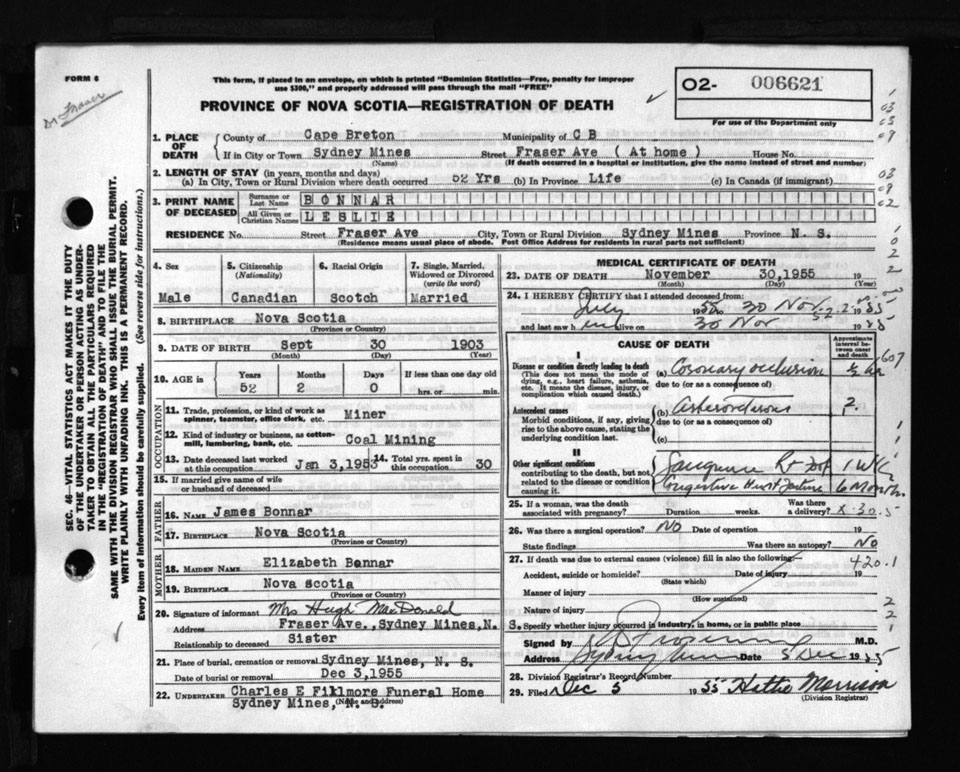 FORM 6
Dr Fraser
This form, if placed in an envelope, on which is printed "Dominion Statistics—Free, penalty for improper
use $300," and properly addressed will pass through the mail "FREE"
02- 006621
For use of the Department only
PROVINCE OF NOVA SCOTIA—REGISTRATION OF DEATH
SEC. 46—VITAL STATISTICS ACT MAKES IT THE DUTY
OF THE UNDERTAKER OR PERSON ACTING AS UNDER-
TAKER TO OBTAIN ALL THE PARTICULARS REQUIRED
IN THE "REGISTRATION OF DEATH" AND TO FILE THE
SAME WITH THE DIVISION REGISTRAR WHO SHALL ISSUE THE BURIAL PERMIT.
WRITE PLAINLY WITH UNFADING INK. THIS IS A PERMANENT RECORD.
Every item of Information should be carefully supplied. (See reverse side for instructions.)
1. PLACE OF DEATH
County of Cape Breton Municipality of C B
If in City or Town Sydney Mines Street Fraser Ave ( At home ) House No.
(Name) (If death occurred in a hospital or institution, give the name instead of street and number)
2. LENGTH OF STAY (in years, months and days)
(a) In City, Town or Rural Division where death occurred 52 Yrs (b) In Province Life (c) In Canada (if immigrant)
3. PRINT NAME OF DECEASED
Surname or Last Name BONNAR
All Given or Christian Names LESLIE
RESIDENCE No. Street Fraser Ave City, Town or Rural Division Sydney Mines Province N. S.
(Residence means usual place of abode. Post Office Address for residents in rural parts not sufficient)
4. Sex
Male
5. Citizenship (Nationality)
Canadian
6. Racial Origin
Scotch
7. Single, Married, Widowed or Divorced (write the word)
Married
8. BIRTHPLACE Nova Scotia
(Province or Country)
9. DATE OF BIRTH Sept 30 1903
(Month) (Day) (Year)
10. AGE in Years Months Days If less than one day old
52 2 0 hrs. or min.
OCCUPATION
11. Trade, profession, or kind of work as spinner, teamster, office clerk, etc. Miner
12. Kind of industry or business, as cotton-mill, lumbering, bank, etc. Coal Mining
13. Date deceased last worked at this occupation Jan 3,1953 14. Total yrs. spent in this occupation 30
15. If married give name of wife or husband of deceased
FATHER
16. NAME James Bonnar
17. BIRTHPLACE Nova Scotia
(Province or Country)
MOTHER
18. MAIDEN NAME Elizabeth Bonnar
19. BIRTHPLACE Nova Scotia
(Province or Country)
20. Signature of informant Mrs Hugh MacDonald
Address Fraser Ave., Sydney Mines,N. S.
Relationship to deceased Sister
21. Place of burial, cremation or removal Sydney Mines, N. S.
Date of burial or removal Dec 3,1955
22. UNDERTAKER Charles E Fillmore Funeral Home
Sydney Mines, N. S.
(Name and address)
MEDICAL CERTIFICATE OF DEATH
23. DATE OF DEATH November 30,1955 19
(Month) (Day)
24. I HEREBY CERTIFY that I attended deceased from:
July 1955 to 30 Nov. 1955
and last saw him alive on 30 Nov 1955
CAUSE OF DEATH
Approximate interval between onset and death
I
Disease or condition directly leading to death
(This does not mean the mode of dying, e.g., heart failure, asthenia, etc. It means the disease, injury, or complication which caused death.)
(a) Coronary occlusion
due to (or as a consequence of)
Antecedent causes
Morbid conditions, if any, giving rise to the above cause, stating the underlying condition last.
(b) ?
due to (or as a consequence of)
(c)
II
Other significant conditions contributing to the death, but not related to the disease or condition causing it.
Gangrene Rt Foot 1 Wk
Congestive Heart Failure 6 Months
25. If a woman, was the death associated with pregnancy? Duration weeks. Was there a delivery?
X-30.5
26. Was there a surgical operation? NO Date of operation 19
State findings Was there an autopsy? No
27. If death was due to external causes (violence) fill in also the following:
420.1
Accident, suicide or homicide? Date of injury 19
(State which)
Manner of injury
(How sustained)
Nature of injury
Specify whether injury occurred in industry, in home, or in public place
Signed by M.D.
Address Sydney Mines Date 5 Dec 1955
28. Division Registrar's Record Number
29. Filed Dec 5 1955 Hattie Morrison
(Division Registrar)